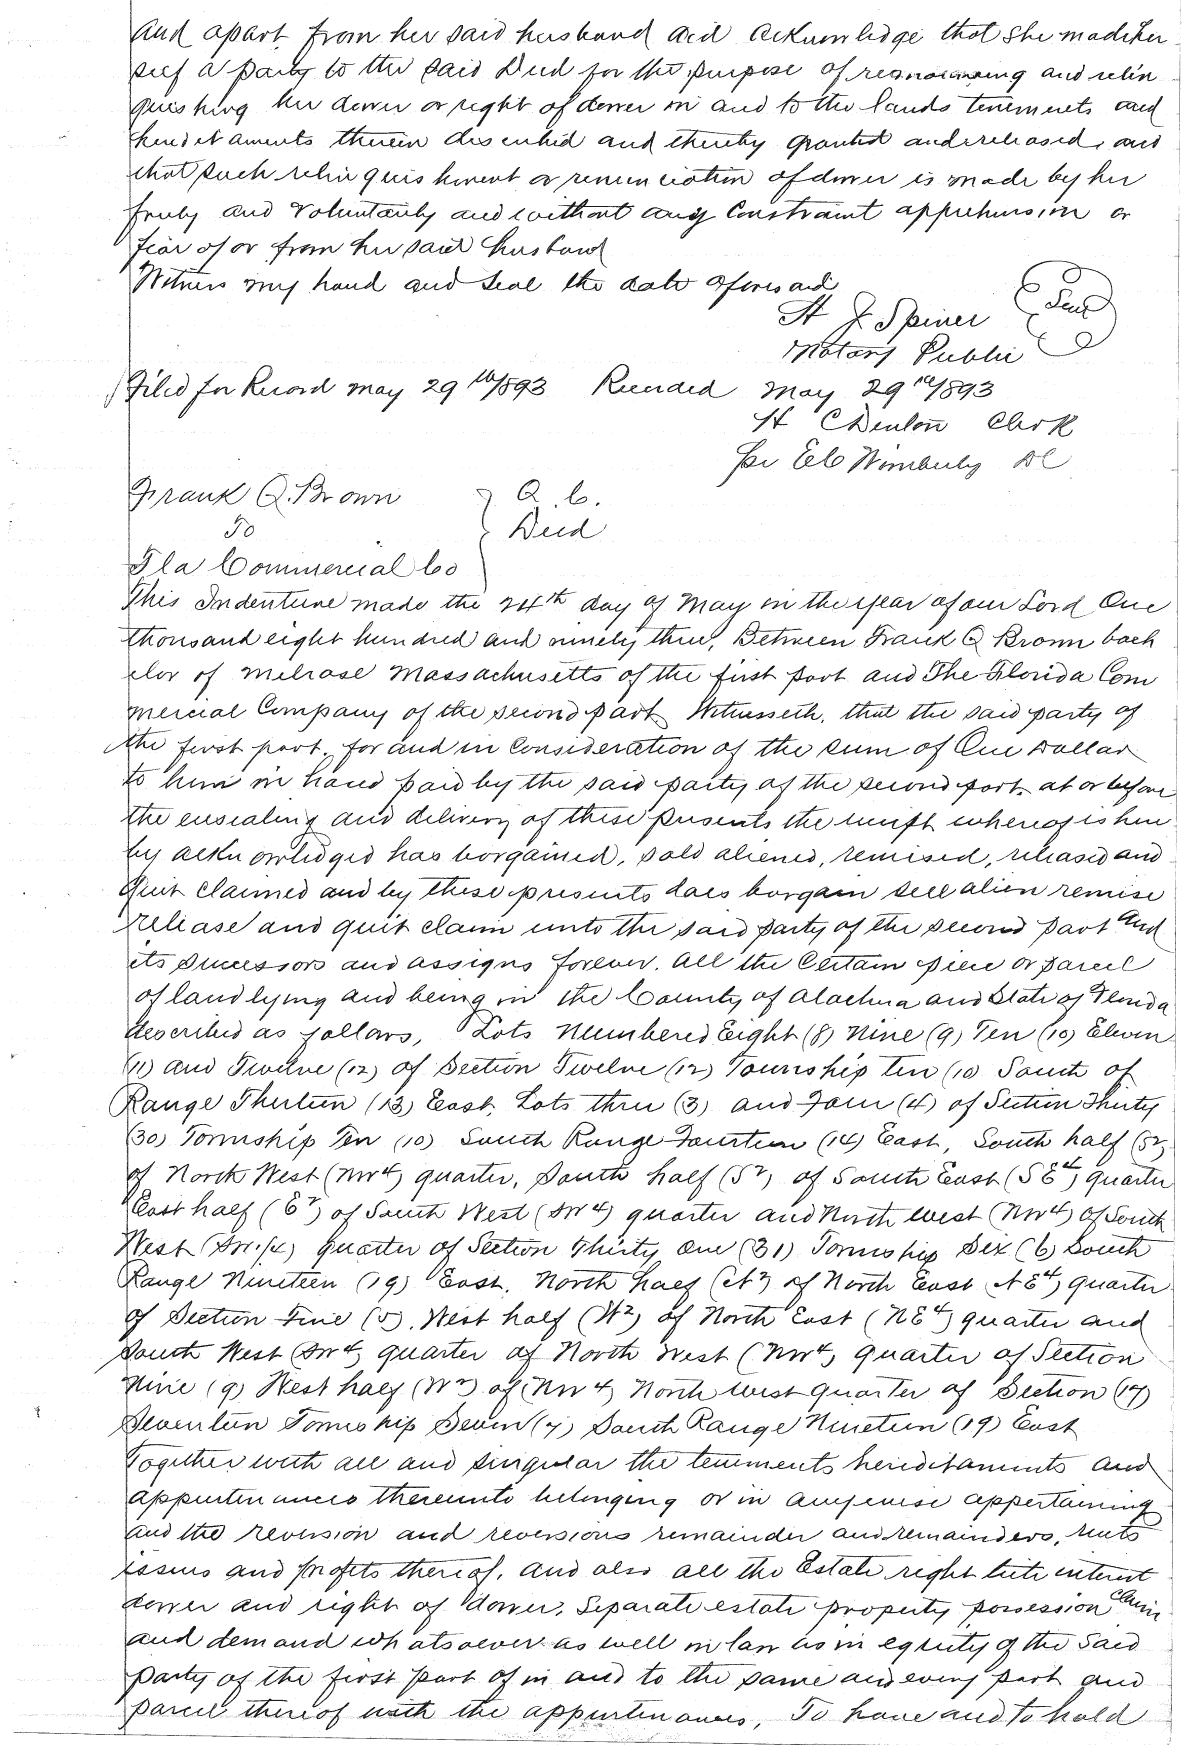 and apart from her said husband did acknowledge that she made her
self a party to the said Deed for the purpose of renouncing and relin
quishing her dower or right of dower in and to the lands tenements and
heriditaments therein described and thereby granted and released, and
that such relinquishment or renunciation of dower is made by her
freely and voluntarily and without any Constraint apprehension or
fear of or from her said husband
Witness my hand and seal the date aforesaid
H J Spiner Seal
Notary Public
Filed for Record May 29th 1893 Recorded May 29th 1893
H C Denton Clerk
Per E C Wimberly DC
Frank Q. Brown } Q. C.
To Deed
Fla Commercial Co
This Indenture made the 24th day of May in the year of our Lord One
thousand eight hundred and ninety three, Between Frank Q Brown bach
elor of Melrose Massachusetts of the first part and The Florida Com
mercial Company of the second part Witnesseth, that the said party of
the first part, for and in Consideration of the sum of One Dollar
to him in hand paid by the said party of the second part, at or before
the ensealing and delivery of these presents the receipt whereof is here
by acknowledged has bargained, sold aliened, remised, released and
Quit Claimed and by these presents does bargain sell alien remise
release and quit claim unto the said party of the second part and
its successors and assigns forever. All the Certain piece or parcel
of land lying and being in the County of Alachua and State of Florida
described as follows, Lots Numbered Eight (8) Nine (9) Ten (10) Eleven
(11) and Twelve (12) of Section Twelve (12) Township ten (10) South of
Range Thirteen (13) East, Lots three (3) and Four (4) of Section Thirty
(30) Township Ten (10) South Range Fourteen (14) East, South half (S2)
of North West (NW4) quarter, South half (S2) of South East (SE4) quarter
East half (E2) of South West (SW4) quarter and North west (NW4) of South
West (SW.1/4) quarter of Section Thirty One (31) Township Six (6) South
Range Nineteen (19) East. North half (N2) of North East (NE4) quarter
of Section Five (5), West half (W2) of North East (NE4) quarter and
South West (SW4) quarter of North West (NW4) quarter of Section
Nine (9) West half (W2) of (NW4) North west quarter of Section (17)
Seventeen Township Seven (7) South Range Nineteen (19) East
Together with all and singular the tenements hereditaments and
appurtenances thereunto belonging or in anywise appertaining
and the reversion and reversions remainder and remainders, rents
issues and profits thereof, and also all the Estate right title interest
dower and right of dower, separate estate property possession claim
and demand whatsoever as well in law as in equity of the said
party of the first part of in and to the same and every part and
parcel thereof with the appurtenances, To have and to hold